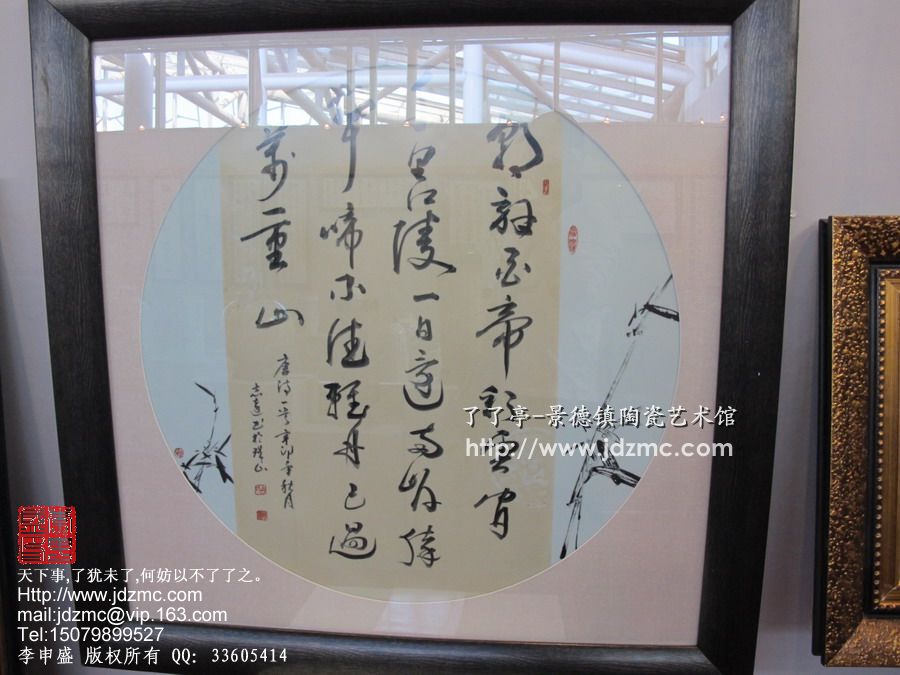 朝辞白帝彩雲间
千里江陵一日還两岸猿
聲啼不住輕舟已過
萬重山
唐诗一首辛卯年秋月
志遠书於珠山
了了亭-景德镇陶瓷艺术馆
http://www.jdzmc.com
天下事,了犹未了,何妨以不了了之。
Http://www.jdzmc.com
mail:jdzmc@vip.163.com
Tel:15079899527
李申盛 版权所有 QQ: 33605414